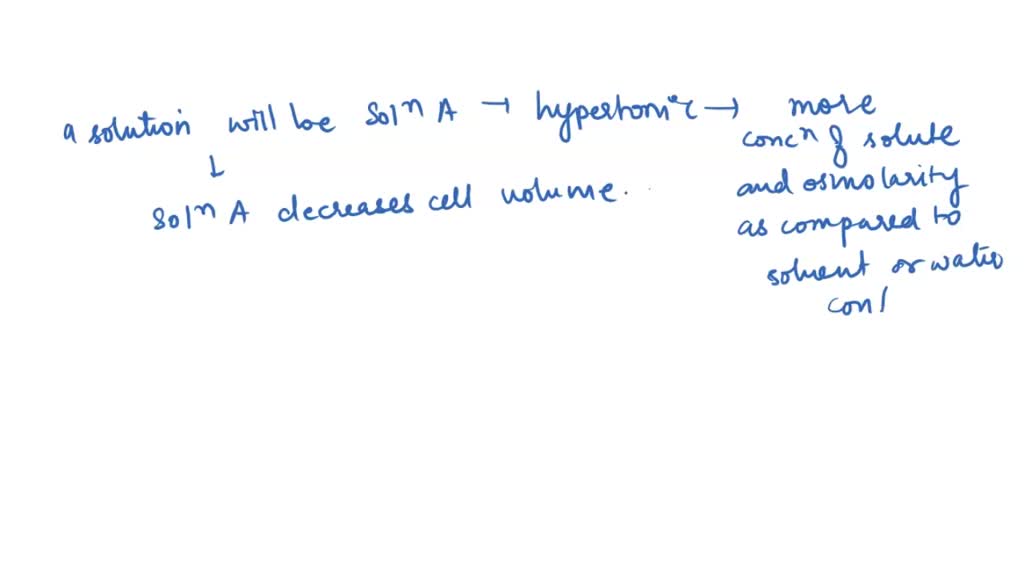 a solution will be Solⁿ A → hypertonic → more
concⁿ of solute
↓
and osmolarity
Solⁿ A decreases cell volume.
as compared to
solvent or water
con